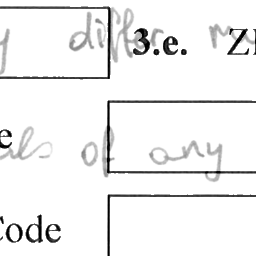 y differ 3.e. Z
e
als of any
Code